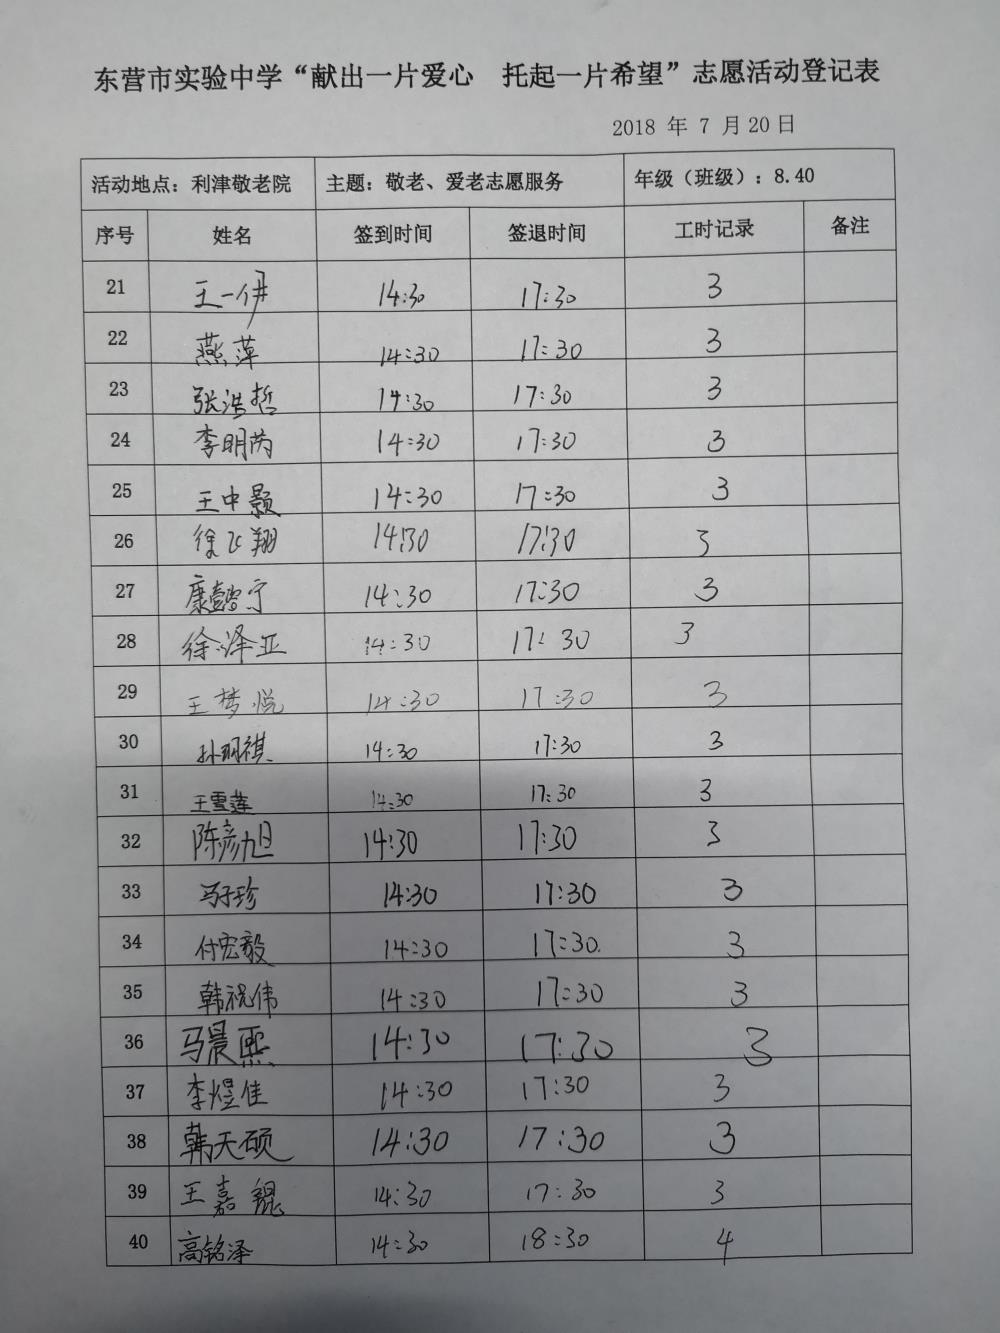 东营市实验中学“献出一片爱心 托起一片希望”志愿活动登记表
2018 年 7 月 20 日
活动地点：利津敬老院 主题：敬老、爱老志愿服务 年级（班级）：8.40
序号 姓名 签到时间 签退时间 工时记录 备注
21 王一伊 14:30 17:30 3
22 燕萍 14:30 17:30 3
23 张浩哲 14:30 17:30 3
24 李明芮 14:30 17:30 3
25 王中颢 14:30 17:30 3
26 徐飞翔 14:30 17:30 3
27 康懿宁 14:30 17:30 3
28 徐泽亚 14:30 17:30 3
29 王梦悦 14:30 17:30 3
30 孙明祺 14:30 17:30 3
31 王雪莲 14:30 17:30 3
32 陈彦旭 14:30 17:30 3
33 马子珍 14:30 17:30 3
34 付宏毅 14:30 17:30 3
35 韩祝伟 14:30 17:30 3
36 马晨熙 14:30 17:30 3
37 李煜佳 14:30 17:30 3
38 韩天硕 14:30 17:30 3
39 王嘉锟 14:30 17:30 3
40 高铭泽 14:30 18:30 4